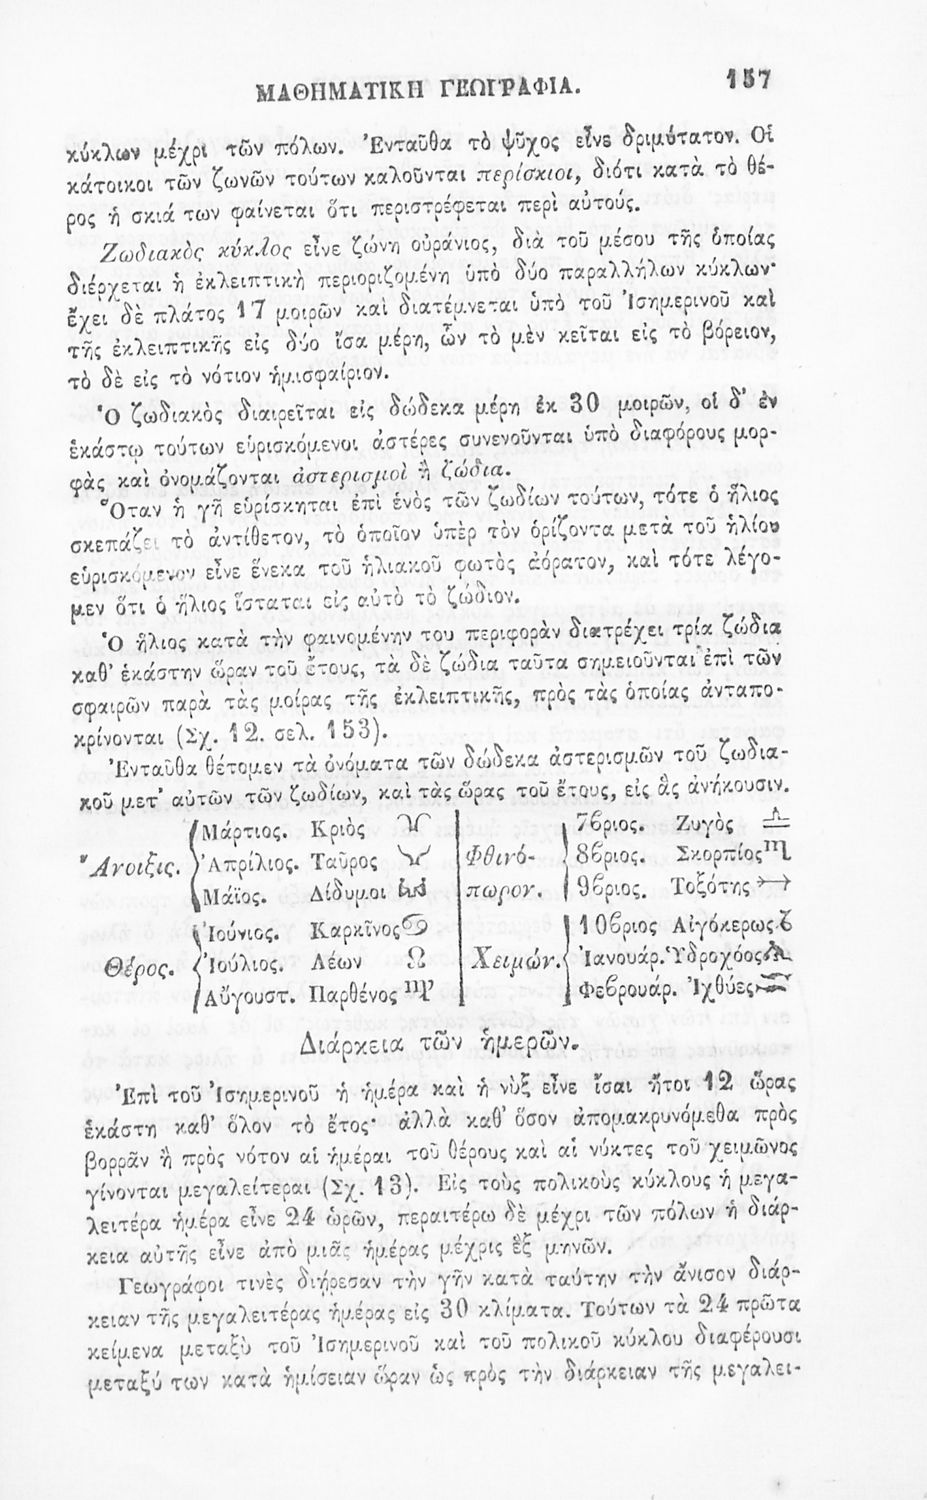 ΜΑΘΗΜΑΤΙΚΗ ΓΕΩΓΡΑΦΙΑ. 157
κύκλων μέχρι τῶν πόλων. Ἐνταῦθα τὸ ψῦχος εἶνε δριμύτατον. Οἱ
κάτοικοι τῶν ζωνῶν τούτων καλοῦνται περίσκιοι, διότι κατὰ τὸ θέ-
ρος ἡ σκιά των φαίνεται ὅτι περιστρέφεται περὶ αὐτούς.
Ζωδιακὸς κύκλος εἶνε ζώνη οὐράνιος, διὰ τοῦ μέσου τῆς ὁποίας
διέρχεται ἡ ἐκλειπτικὴ περιοριζομένη ὑπὸ δύο παραλλήλων κύκλων·
ἔχει δὲ πλάτος 17 μοιρῶν καὶ διατέμνεται ὑπὸ τοῦ Ἰσημερινοῦ καὶ
τῆς ἐκλειπτικῆς εἰς δύο ἴσα μέρη, ὧν τὸ μὲν κεῖται εἰς τὸ βόρειον,
τὸ δὲ εἰς τὸ νότιον ἡμισφαίριον.
Ὁ ζωδιακὸς διαιρεῖται εἰς δώδεκα μέρη ἐκ 30 μοιρῶν, οἱ δ' ἐν
ἑκάστῳ τούτων εὑρισκόμενοι ἀστέρες συνενοῦνται ὑπὸ διαφόρους μορ-
φὰς καὶ ὀνομάζονται ἀστερισμοὶ ἢ ζώδια.
Ὅταν ἡ γῆ εὑρίσκηται ἐπὶ ἑνὸς τῶν ζωδίων τούτων, τότε ὁ ἥλιος
σκεπάζει τὸ ἀντίθετον, τὸ ὁποῖον ὑπὲρ τὸν ὁρίζοντα μετὰ τοῦ ἡλίου
εὑρισκόμενον εἶνε ἕνεκα τοῦ ἡλιακοῦ φωτὸς ἀόρατον, καὶ τότε λέγο-
μεν ὅτι ὁ ἥλιος ἵσταται εἰς αὐτὸ τὸ ζώδιον.
Ὁ ἥλιος κατὰ τὴν φαινομένην του περιφορὰν διατρέχει τρία ζώδια
καθ' ἑκάστην ὥραν τοῦ ἔτους, τὰ δὲ ζώδια ταῦτα σημειοῦνται ἐπὶ τῶν
σφαιρῶν παρὰ τὰς μοίρας τῆς ἐκλειπτικῆς, πρὸς τὰς ὁποίας ἀνταπο-
κρίνονται (Σχ. 12. σελ. 153).
Ἐνταῦθα θέτομεν τὰ ὀνόματα τῶν δώδεκα ἀστερισμῶν τοῦ ζωδια-
κοῦ μετ' αὐτῶν τῶν ζωδίων, καὶ τὰς ὥρας τοῦ ἔτους, εἰς ἃς ἀνήκουσιν.
Μάρτιος. Κριὸς ♈ 7βριος. Ζυγὸς ♎
Ἄνοιξις. Ἀπρίλιος. Ταῦρος ♉ Φθινό- 8βριος. Σκορπίος ♏
Μάϊος. Δίδυμοι ♊ πωρον. 9βριος. Τοξότης ♐
Ἰούνιος. Καρκῖνος ♋ 10βριος Αἰγόκερως ♑
Θέρος. Ἰούλιος. Λέων ♌ Χειμών. Ἰανουάρ. Ὑδροχόος ♒
Αὔγουστ. Παρθένος ♍ Φεβρουάρ. Ἰχθύες ♓
Διάρκεια τῶν ἡμερῶν.
Ἐπὶ τοῦ Ἰσημερινοῦ ἡ ἡμέρα καὶ ἡ νὺξ εἶνε ἴσαι ἤτοι 12 ὥρας
ἑκάστη καθ' ὅλον τὸ ἔτος· ἀλλὰ καθ' ὅσον ἀπομακρυνόμεθα πρὸς
βορρᾶν ἢ πρὸς νότον αἱ ἡμέραι τοῦ θέρους καὶ αἱ νύκτες τοῦ χειμῶνος
γίνονται μεγαλείτεραι (Σχ. 13). Εἰς τοὺς πολικοὺς κύκλους ἡ μεγα-
λειτέρα ἡμέρα εἶνε 24 ὡρῶν, περαιτέρω δὲ μέχρι τῶν πόλων ἡ διάρ-
κεια αὐτῆς εἶνε ἀπὸ μιᾶς ἡμέρας μέχρις ἓξ μηνῶν.
Γεωγράφοι τινὲς διῄρεσαν τὴν γῆν κατὰ ταύτην τὴν ἄνισον διάρ-
κειαν τῆς μεγαλειτέρας ἡμέρας εἰς 30 κλίματα. Τούτων τὰ 24 πρῶτα
κείμενα μεταξὺ τοῦ Ἰσημερινοῦ καὶ τοῦ πολικοῦ κύκλου διαφέρουσι
μεταξύ των κατὰ ἡμίσειαν ὥραν ὡς πρὸς τὴν διάρκειαν τῆς μεγαλει-